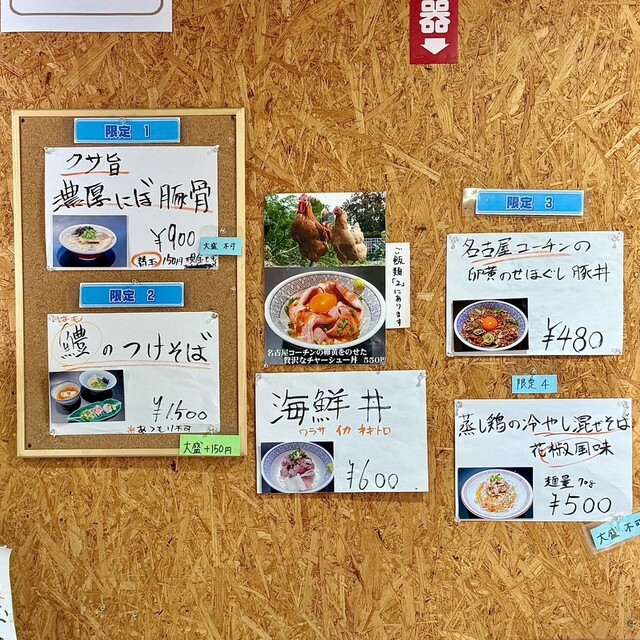 器
限定 1
クサ旨
濃厚にぼ豚骨
¥900
大盛 不可
替玉 150円 現金です
限定 2
はも
鱧のつけそば
¥1,500
※あつもり不可
大盛 +150円
ご飯類「2」にあります
名古屋コーチンの卵黄をのせた
贅沢なチャーシュー丼 550円
海鮮丼
ワラサ イカ ネギトロ
¥600
限定 3
名古屋コーチンの
卵黄のせほぐし豚丼
¥480
限定 4
蒸し鶏の冷やし混ぜそば
花椒風味
麺量 70g
¥500
大盛 不可